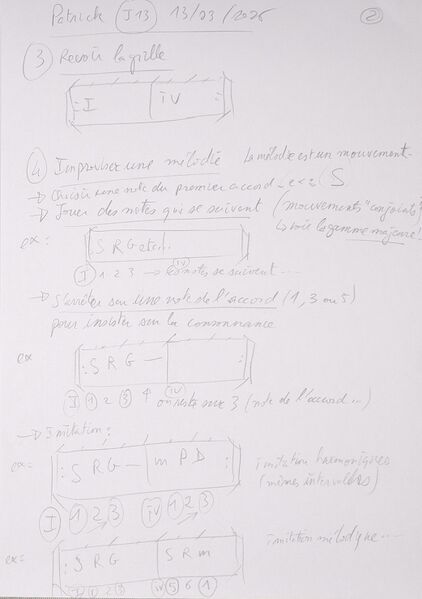 Patrick J13 13/03/2026 2
3 Revoir la grille
: I IV :
4 Improviser une mélodie La mélodie est un mouvement
→ Choisir une note du premier accord - ex : S
→ Jouer des notes qui se suivent (mouvements "conjoints")
↳ voir la gamme majeure !
ex : : S R G etc. :
I 1 2 3 IV → les notes se suivent...
→ S'arrêter sur une note de l'accord (1, 3 ou 5)
pour insister sur la consonnance
ex : S R G —
I 1 2 3 4 IV on reste sur 3 (note de l'accord...)
→ Imitation :
ex : : S R G — m P D : imitation harmonique
(mêmes intervalles)
I 1 2 3 IV 1 2 3
ex : : S R G S R m imitation mélodique...
I 1 2 3 IV 5 6 1